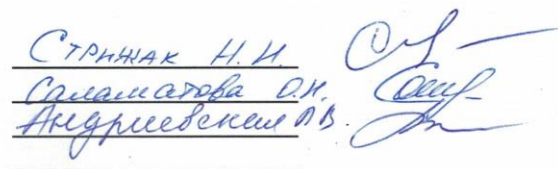 Стрижак Н.И.
Саламатова О.Н.
Андриевская Л.В.